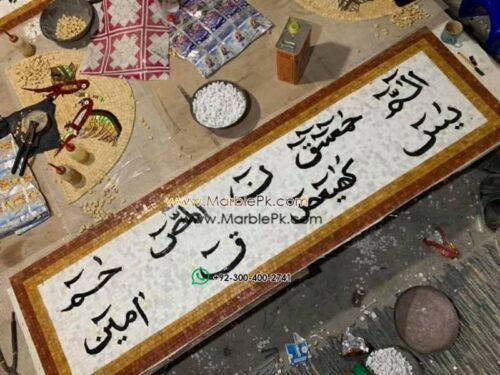 يٰسٓ
الٓمّٓرٰ
حٰمٓعٓسٓقٓ
كٓهٰيٰعٓصٓ
نٓ
قٓ
حٰمٓ
اٰمين
www.MarblePk.com
www.MarblePk.com
+92-300-400-2741